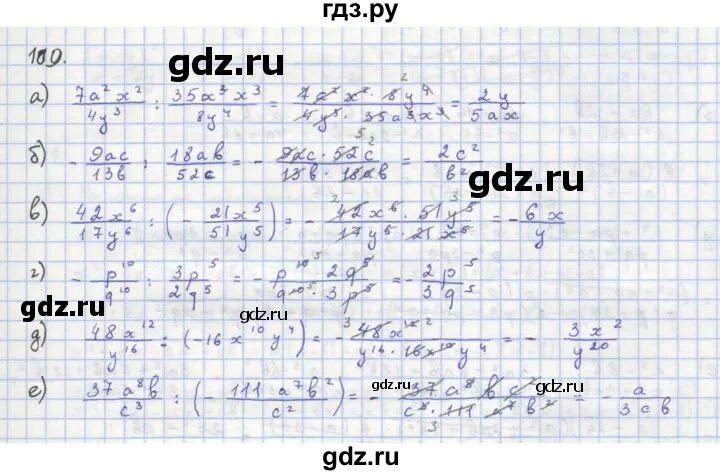 гдз.ру
100.
гдз.ру
а) 7a²x²/4y³ : 35a³x³/8y⁴ = 7a²x² · 8y⁴ 2/4y³ · 35a³x³ = 2y/5ax
б) - 9ac/13b : 18ab/52c = - 9ac · 52c/13b · 18ab = 2c²/b²
в) 42x⁶/17y⁶ : (- 21x⁵/51y⁵) = - 2 42x⁶ · 51y⁵ 3/17y⁶ · 21x⁵ = - 6x/y
г) - p¹⁰/q¹⁰ : 3p⁵/2q⁵ = - p¹⁰ · 2q⁵/q¹⁰ · 3p⁵ = - 2p⁵/3q⁵
гдз.ру гдз.ру гдз.ру
д) 48x¹²/y¹⁶ : (-16x¹⁰y⁴) = - 3 48x¹²/y¹⁶ · 16x¹⁰y⁴ = - 3x²/y²⁰
гдз.ру
е) 37a⁸b/c³ : (- 111a⁷b²/c²) = - 37a⁸bc²/c³ · 111a⁷b² 3 = - a/3cb
гдз.ру гдз.ру